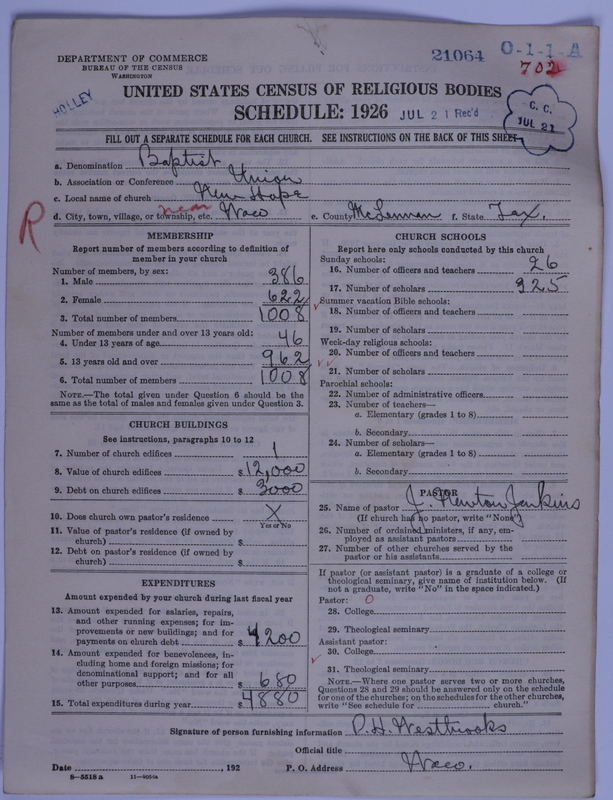 DEPARTMENT OF COMMERCE
BUREAU OF THE CENSUS
WASHINGTON
21064 O-1-1-A
702
HOLLEY
UNITED STATES CENSUS OF RELIGIOUS BODIES
SCHEDULE: 1926 JUL 21 Rec'd
C. C.
JUL 21
FILL OUT A SEPARATE SCHEDULE FOR EACH CHURCH. SEE INSTRUCTIONS ON THE BACK OF THIS SHEET
a. Denomination Baptist
b. Association or Conference Union
c. Local name of church New Hope
d. City, town, village, or township, etc. near Waco e. County McLennan f. State Tex.
R
MEMBERSHIP
Report number of members according to definition of member in your church
Number of members, by sex:
1. Male 386
2. Female 622
3. Total number of members 1008
Number of members under and over 13 years old:
4. Under 13 years of age 46
5. 13 years old and over 962
6. Total number of members 1008
NOTE.—The total given under Question 6 should be
same as the total of males and females given under Question 3.
CHURCH BUILDINGS
See instructions, paragraphs 10 to 12
7. Number of church edifices 1
8. Value of church edifices $ 12,000
9. Debt on church edifices $ 3000
10. Does church own pastor's residence X
Yes or No
11. Value of pastor's residence (if owned by
church) $
12. Debt on pastor's residence (if owned by
church) $
EXPENDITURES
Amount expended by your church during last fiscal year
13. Amount expended for salaries, repairs,
and other running expenses; for im-
provements or new buildings; and for
payments on church debt $ 4200
14. Amount expended for benevolences, in-
cluding home and foreign missions; for
denominational support; and for all
other purposes $ 680
15. Total expenditures during year $ 4880
CHURCH SCHOOLS
Report here only schools conducted by this church
Sunday schools:
16. Number of officers and teachers 26
17. Number of scholars 325
Summer vacation Bible schools:
18. Number of officers and teachers
19. Number of scholars
Week-day religious schools:
20. Number of officers and teachers
21. Number of scholars
Parochial schools:
22. Number of administrative officers
23. Number of teachers—
a. Elementary (grades 1 to 8)
b. Secondary
24. Number of scholars—
a. Elementary (grades 1 to 8)
b. Secondary
PASTOR
25. Name of pastor J. Newton Jenkins
(If church has no pastor, write "None")
26. Number of ordained ministers, if any, em-
ployed as assistant pastors
27. Number of other churches served by the
pastor or his assistants
If pastor (or assistant pastor) is a graduate of a college or
theological seminary, give name of institution below. (If
not a graduate, write "No" in the space indicated.)
Pastor: 0
28. College
29. Theological seminary
Assistant pastor:
30. College
31. Theological seminary
NOTE.—Where one pastor serves two or more churches,
Questions 28 and 29 should be answered only on the schedule
for one of the churches; on the schedules for the other churches,
write "See schedule for church."
Signature of person furnishing information P. H. Westbrooks
Official title
Date , 192 P. O. Address Waco.
8-5518 a 11-9004a